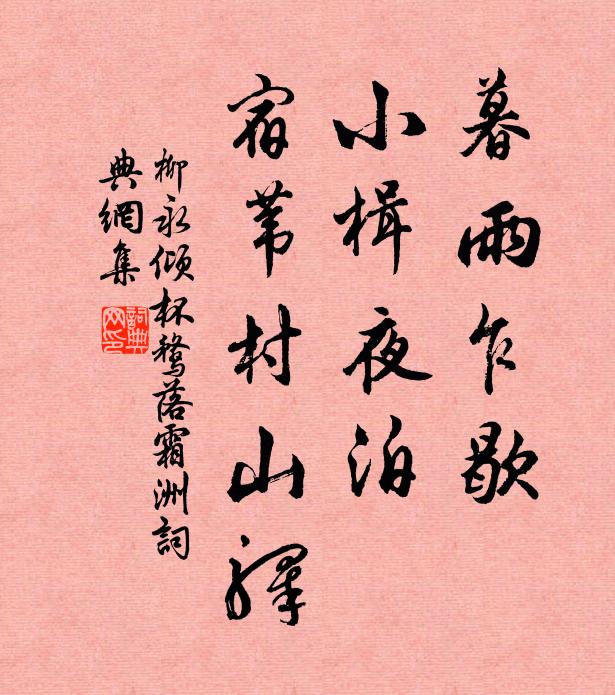 暮雨乍歇
小楫夜泊
宿苇村山驿
柳永倾杯鹜落霜洲詞
典網集
詞典网印